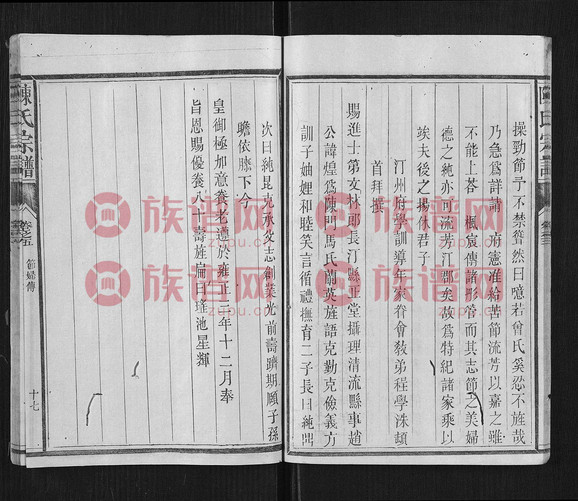 操勁節予不禁聳然曰噫若曾氏奚忍不旌哉
乃急為詳請　府憲准給苦節流芳以嘉之雖
不能上荅　楓宸傳諸彤管而其志節之美婦
德之純亦可流芳江郡矣故為特紀諸家乘以
俟夫後之揚休君子
汀州府學訓導年家眷會教弟程學洙頓
首拜撰
賜進士第文林郎長汀縣正堂攝理清流縣事趙
公諱煌為陳門馬氏蘭英旌語克勤克儉義方
訓子妯娌和睦笑言循禮撫育二子長曰純
次曰純昆克承父志創業光前壽躋期頤子孫
瞻依膝下今
皇御極加意養老遵於雍正十三年十二月奉
旨恩賜優養八十壽旌扁曰瑤池星輝
陳氏宗譜
卷之三
節婦傳
十七
陳氏宗譜
卷之三
族谱网
zupu.cn
族谱网
zupu.cn
族谱网
zupu.cn
族谱网
zupu.cn